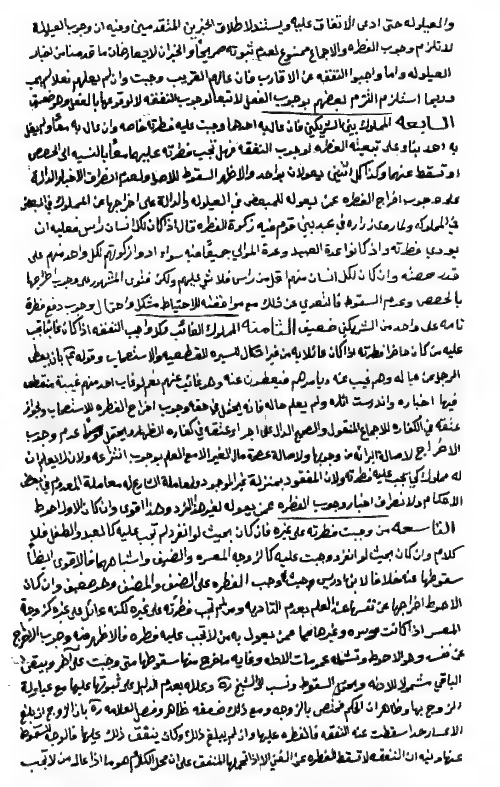 والعيلولة حتى ادعى الاتفاق عليه ويستند لاطلاق الخبرين المتقدمين وفيه ان وجوب العيلولة
لا تلزم وجوب الفطرة والاجماع ممنوع لعدم ثبوته صريحا والخبران لا يعارضان ما قدمنا من اخبار
العيلولة واما واجبوا النفقة عن الاقارب فان عالهم القريب وجبت وان لم يعلهم فلم تجب
وربما استلزم التزم بعضهم بوجوب الفضل لا تبعا لوجوب النفقة لا لوقوعها بالفعل وهو ضعيف
السابعة المملوك بين الشريكين فان عاله احدهما وجبت عليه فطرته خاصة وان عاله معا ولم يقل
به احد بناء على تبعية الفطرة لوجوب النفقة فهل تجب فطرته عليهما معا بالنسبة الى الحصص
او تسقط عنهما وكذا كل اثنين يعولان بواحد والاظهر السقوط للاصل ولعدم انصراف الاخبار الدالة
على وجوب اخراج الفطرة عمن يعوله للمبعض في العيلولة والدالة على اخراجها عن المملوك في البعض
في المملوكة ولما روى زرارة في عبد بين قوم فيه زكوة الفطرة قال اذا كان لكل انسان رأس فعليه ان
يؤدي فطرته واذا كانوا عدة العبيد وعدة الموالي جميعا فيه سواء ادوا زكوتهم لكل واحد منهم على
قدر حصته وان كان لكل انسان منهم اقل من رأس فلا شيء عليهم ولكن فتوى المشهور على وجوب اخراجها
بالحصص وعدم السقوط فالتعدي عن ذلك مع موافقته للاحتياط مشكل واحتمال وجوب دفع فطرة
تامة على واحد من الشريكين ضعيف الثامنة المملوك الغائب فكلا واجب النفقة اذا كان غائبا تجب
عليه من كان حاضرا فطرته اذا كان عائلا به من غير اشكال للسيرة القطعية والاستصحاب وقوله ع بان يعطى
الرجل عن عياله وهم غيب عنه ويامرهم فيعطون عنه وهو غائب عنهم نعم لو غاب احد منهم غيبة منقطعة
فيها اخباره واندرست اثاره ولم يعلم حاله فانه يحتمل في حقه وجوب اخراج الفطرة للاستصحاب ولجواز
عتقه في الكفارة للاجماع المنقول والصحيح الدال على اجزاء عتقه في كفارة الظهار ويحتمل عدم وجوب
الاخراج لاصالة البراءة من وجوبها ولاصالة عصمة مال الغير الا مع العلم بوجوب انتزاعه ولانه لا يعلم ان
له مملوك كي تجب عليه فطرته ولان المفقود بمنزلة غير الموجود ولمعاملة الشارع له معاملة المعدوم في بعض
الاحكام ولانصراف اخبار وجوب الفطرة عمن يعوله لغير هذا الفرد وهذا اقوى وان كان الاول احوط
التاسعة من وجبت فطرته على غيره فان كان بحيث لو انفرد لم تجب عليه كالعبد والطفل فلا
كلام وان كان بحيث لو انفرد وجبت عليه كالزوجة الموسرة والضيف واشباههما فالاقوى ايضا
سقوطها عنه خلافا لابن ادريس حيث اوجب الفطرة على الضيف والمضيف وهو ضعيف وان كان
الاحوط اخراجها عن نفسها عند العلم بعدم التادية ومن لم تجب فطرته على غيره لكنه عائل على غيره كزوجة
المعسر اذا كانت موسرة وغيرها ممن يعول به من لا تجب عليه فطرة فالاظهر فيه وجوب الاخراج
عن نفسه وهو الاحوط وتشمله عمومات الادلة وغاية ما خرج منها سقوطها متى وجبت على آخر ويبقى
الباقي مشمولا للادلة ويحتمل السقوط ونسب للشيخ ره وعلله بعدم الدليل على ثبوتها عليها مع عيلولة
الزوج بها وظاهر ان الحكم مختص بالزوجة ومع ذلك ضعفه ظاهر وفصل العلامة ره بان الزوج ان بلغ
الاعسار حدا سقطت عنه النفقة فالفطرة عليها وان لم يبلغ ذلك وكان ينفق ذلك عليها فالوجه السقوط
عنها وفيه ان النفقة لا تسقط الفطرة عن الغني الا اذا تحملها المنفق على ان محل الكلام هو ما اذا عاله من لا تجب